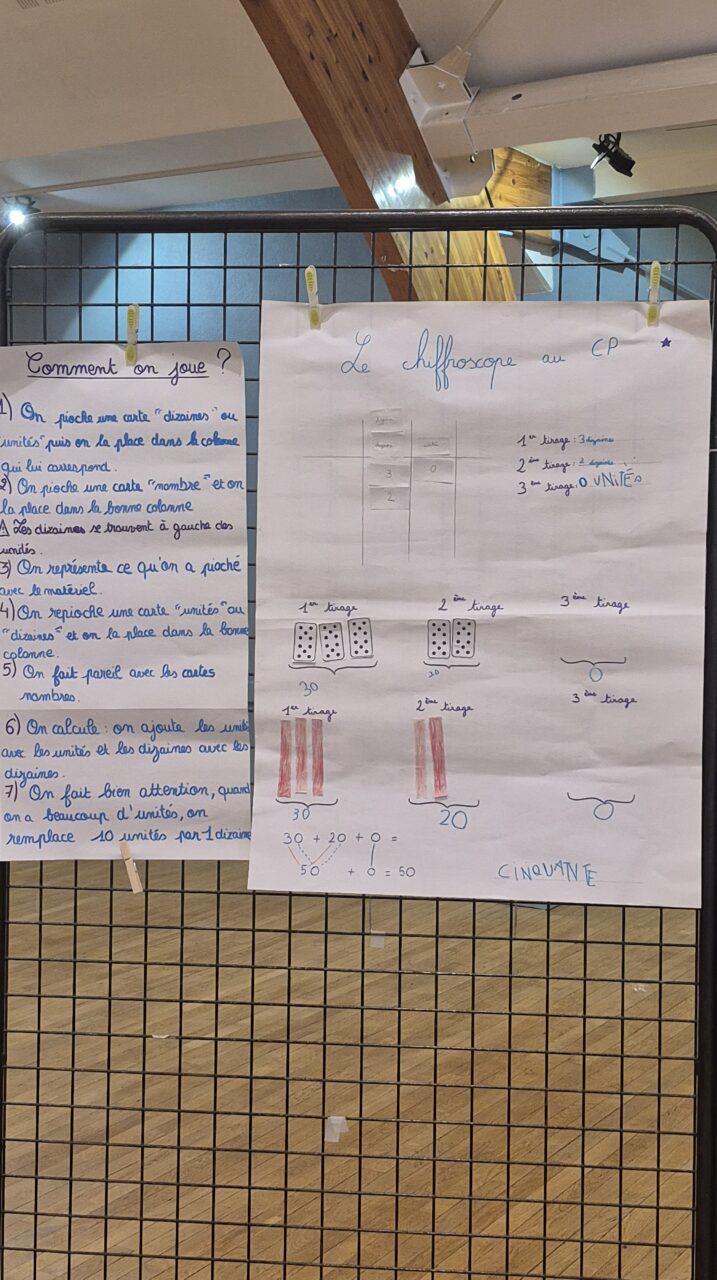 Comment on joue ?
1) On pioche une carte "dizaines" ou
"unités" puis on la place dans la colonne
qui lui correspond.
2) On pioche une carte "nombre" et on
la place dans la bonne colonne
⚠ Les dizaines se trouvent à gauche des
unités.
3) On représente ce qu'on a pioché
avec le matériel.
4) On repioche une carte "unités" ou
"dizaines" et on la place dans la bonne
colonne.
5) On fait pareil avec les cartes
nombres.
6) On calcule : on ajoute les unités
avec les unités et les dizaines avec les
dizaines.
7) On fait bien attention, quand
on a beaucoup d'unités, on
remplace 10 unités par 1 dizaine
Le chiffroscope au CP
3 0
2
1er tirage : 3 dizaines
2ème tirage : 2 dizaines
3ème tirage : 0 UNITÉS
1er tirage 2ème tirage 3ème tirage
30 20 0
1er tirage 2ème tirage 3ème tirage
30 20 0
30 + 20 + 0 =
50 + 0 = 50
CINQUANTE